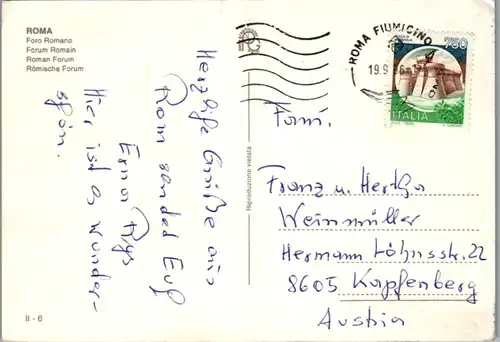 ROMA
Foro Romano
Forum Romain
Roman Forum
Römische Forum
Herzliche Grüße aus
Rom sendet Euch
Erna
Hier ist es wunder-
schön.
II - 6
Riproduzione vietata
ROMA FIUMICINO
19.9
750
ITALIA
Fam.
Franz u. Hertha
Weinmüller
Hermann Löhnsstr. 22
8605 Kapfenberg
Austria